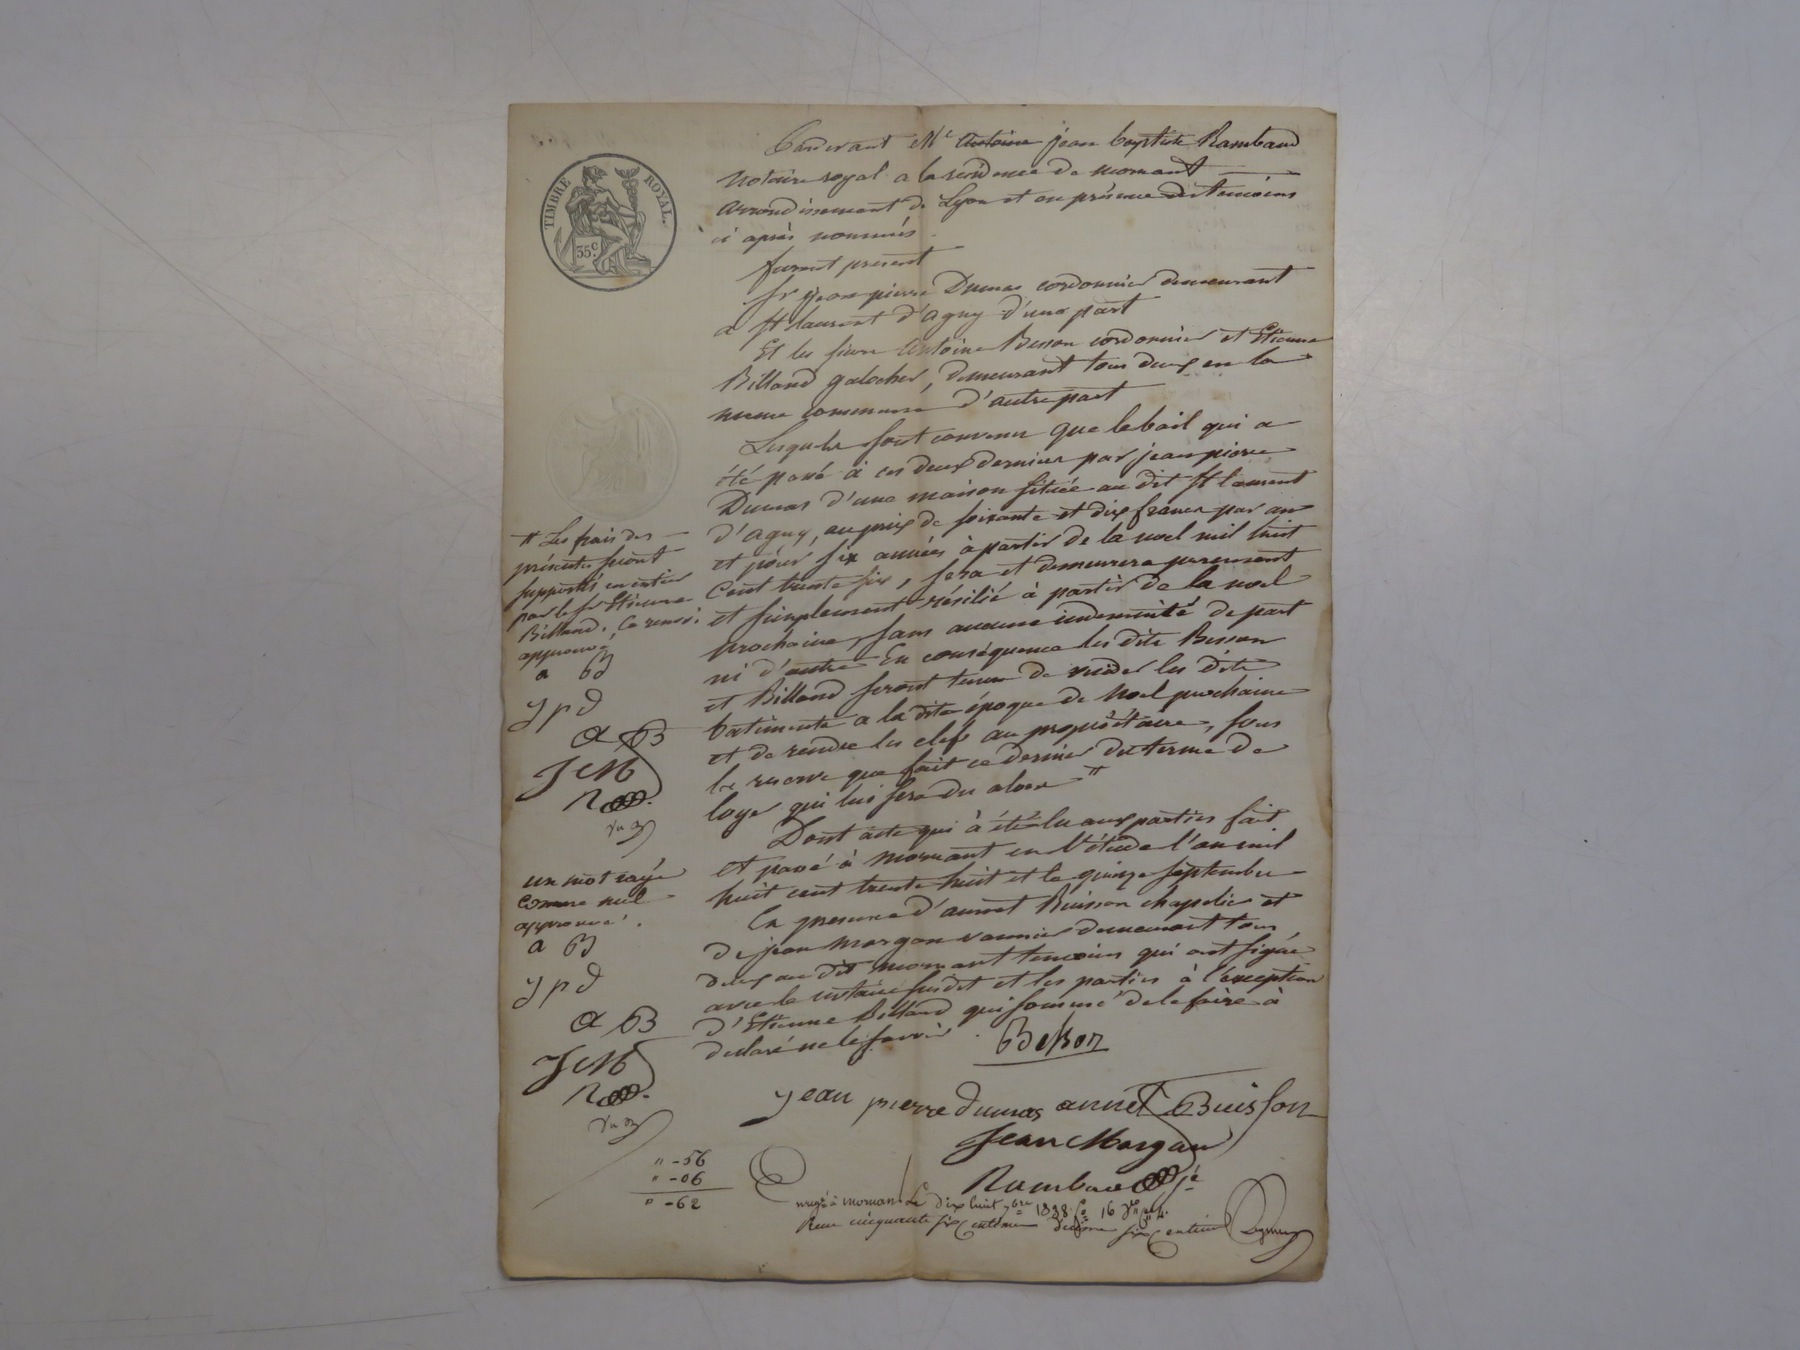 TIMBRE ROYAL.
35c.
Pardevant Me Antoine jean baptiste Rambaud
Notaire royal a la residence de mornant
arrondissement de Lyon et en présence des temoins
ci après nommés.
furent present
sr jean pierre Dumas cordonnier demeurant
a st laurent d'agny d'une part
Et les sieurs Antoine Besson cordonnier et Etienne
Billand galocher, demeurant tous deux en la
meme commune d'autre part
Lesquels sont convenu que le bail qui a
été passé à ces deux derniers par jean pierre
Dumas d'une maison située au dit st laurent
d'agny, au prix de soixante et dix francs par an
et pour six années à partir de la noel mil huit
cent trente six, sera et demeurera purement
et simplement résilié à partir de la noel
prochaine, sans aucune indemnité de part
ni d'autre En conséquence les dits Besson
et Billand seront tenu de vuider les dits
batiments a la dite époque de Noel prochaine
et de rendre les clefs au propriétaire, sous
la reserve que fait ce dernier du terme de
loyer qui lui sera du alors #
Dont acte qui à été lu aux parties fait
et passé à mornant en l'étude l'an mil
huit cent trente huit et le quinze septembre
En presence d'annet Buisson chapelier et
de jean morgan vannier demeurant tous
deux au dit mornant temoins qui ont signé
avec le notaire susdit et les parties à l'exception
d'Etienne Billand qui sommé de le faire à
declaré ne le savoir.
# Les frais des
présentes seront
supportés en entier
par le sr Etienne
Billand. Ce renvoi
approuvé
a B
j p d
a B
J M
R
un mot rayé
comme nul
approuvé.
a B
j p d
a B
J M
R
Besson
jean pierre dumas annet Buisson
Jean Morgan
Rambaud
" - 56
" - 06
" - 62
Enregé à mornant Le dix huit 7bre 1838 fo 16
Reçu cinquante six centimes Décime six centimes